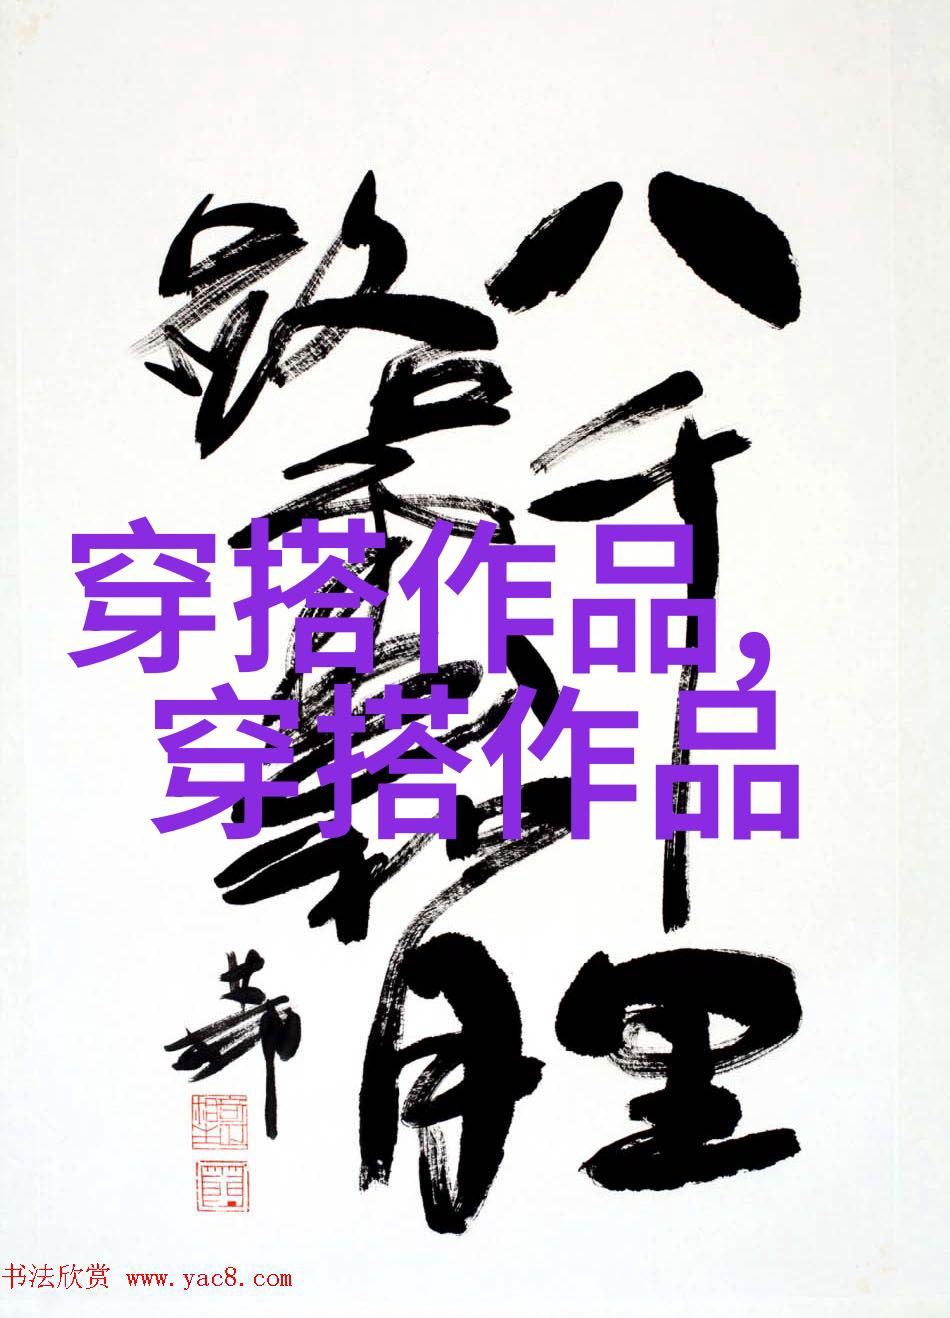 八千里
路雲和月
穿搭作品,
穿搭作品
书法欣赏 www.yac8.com